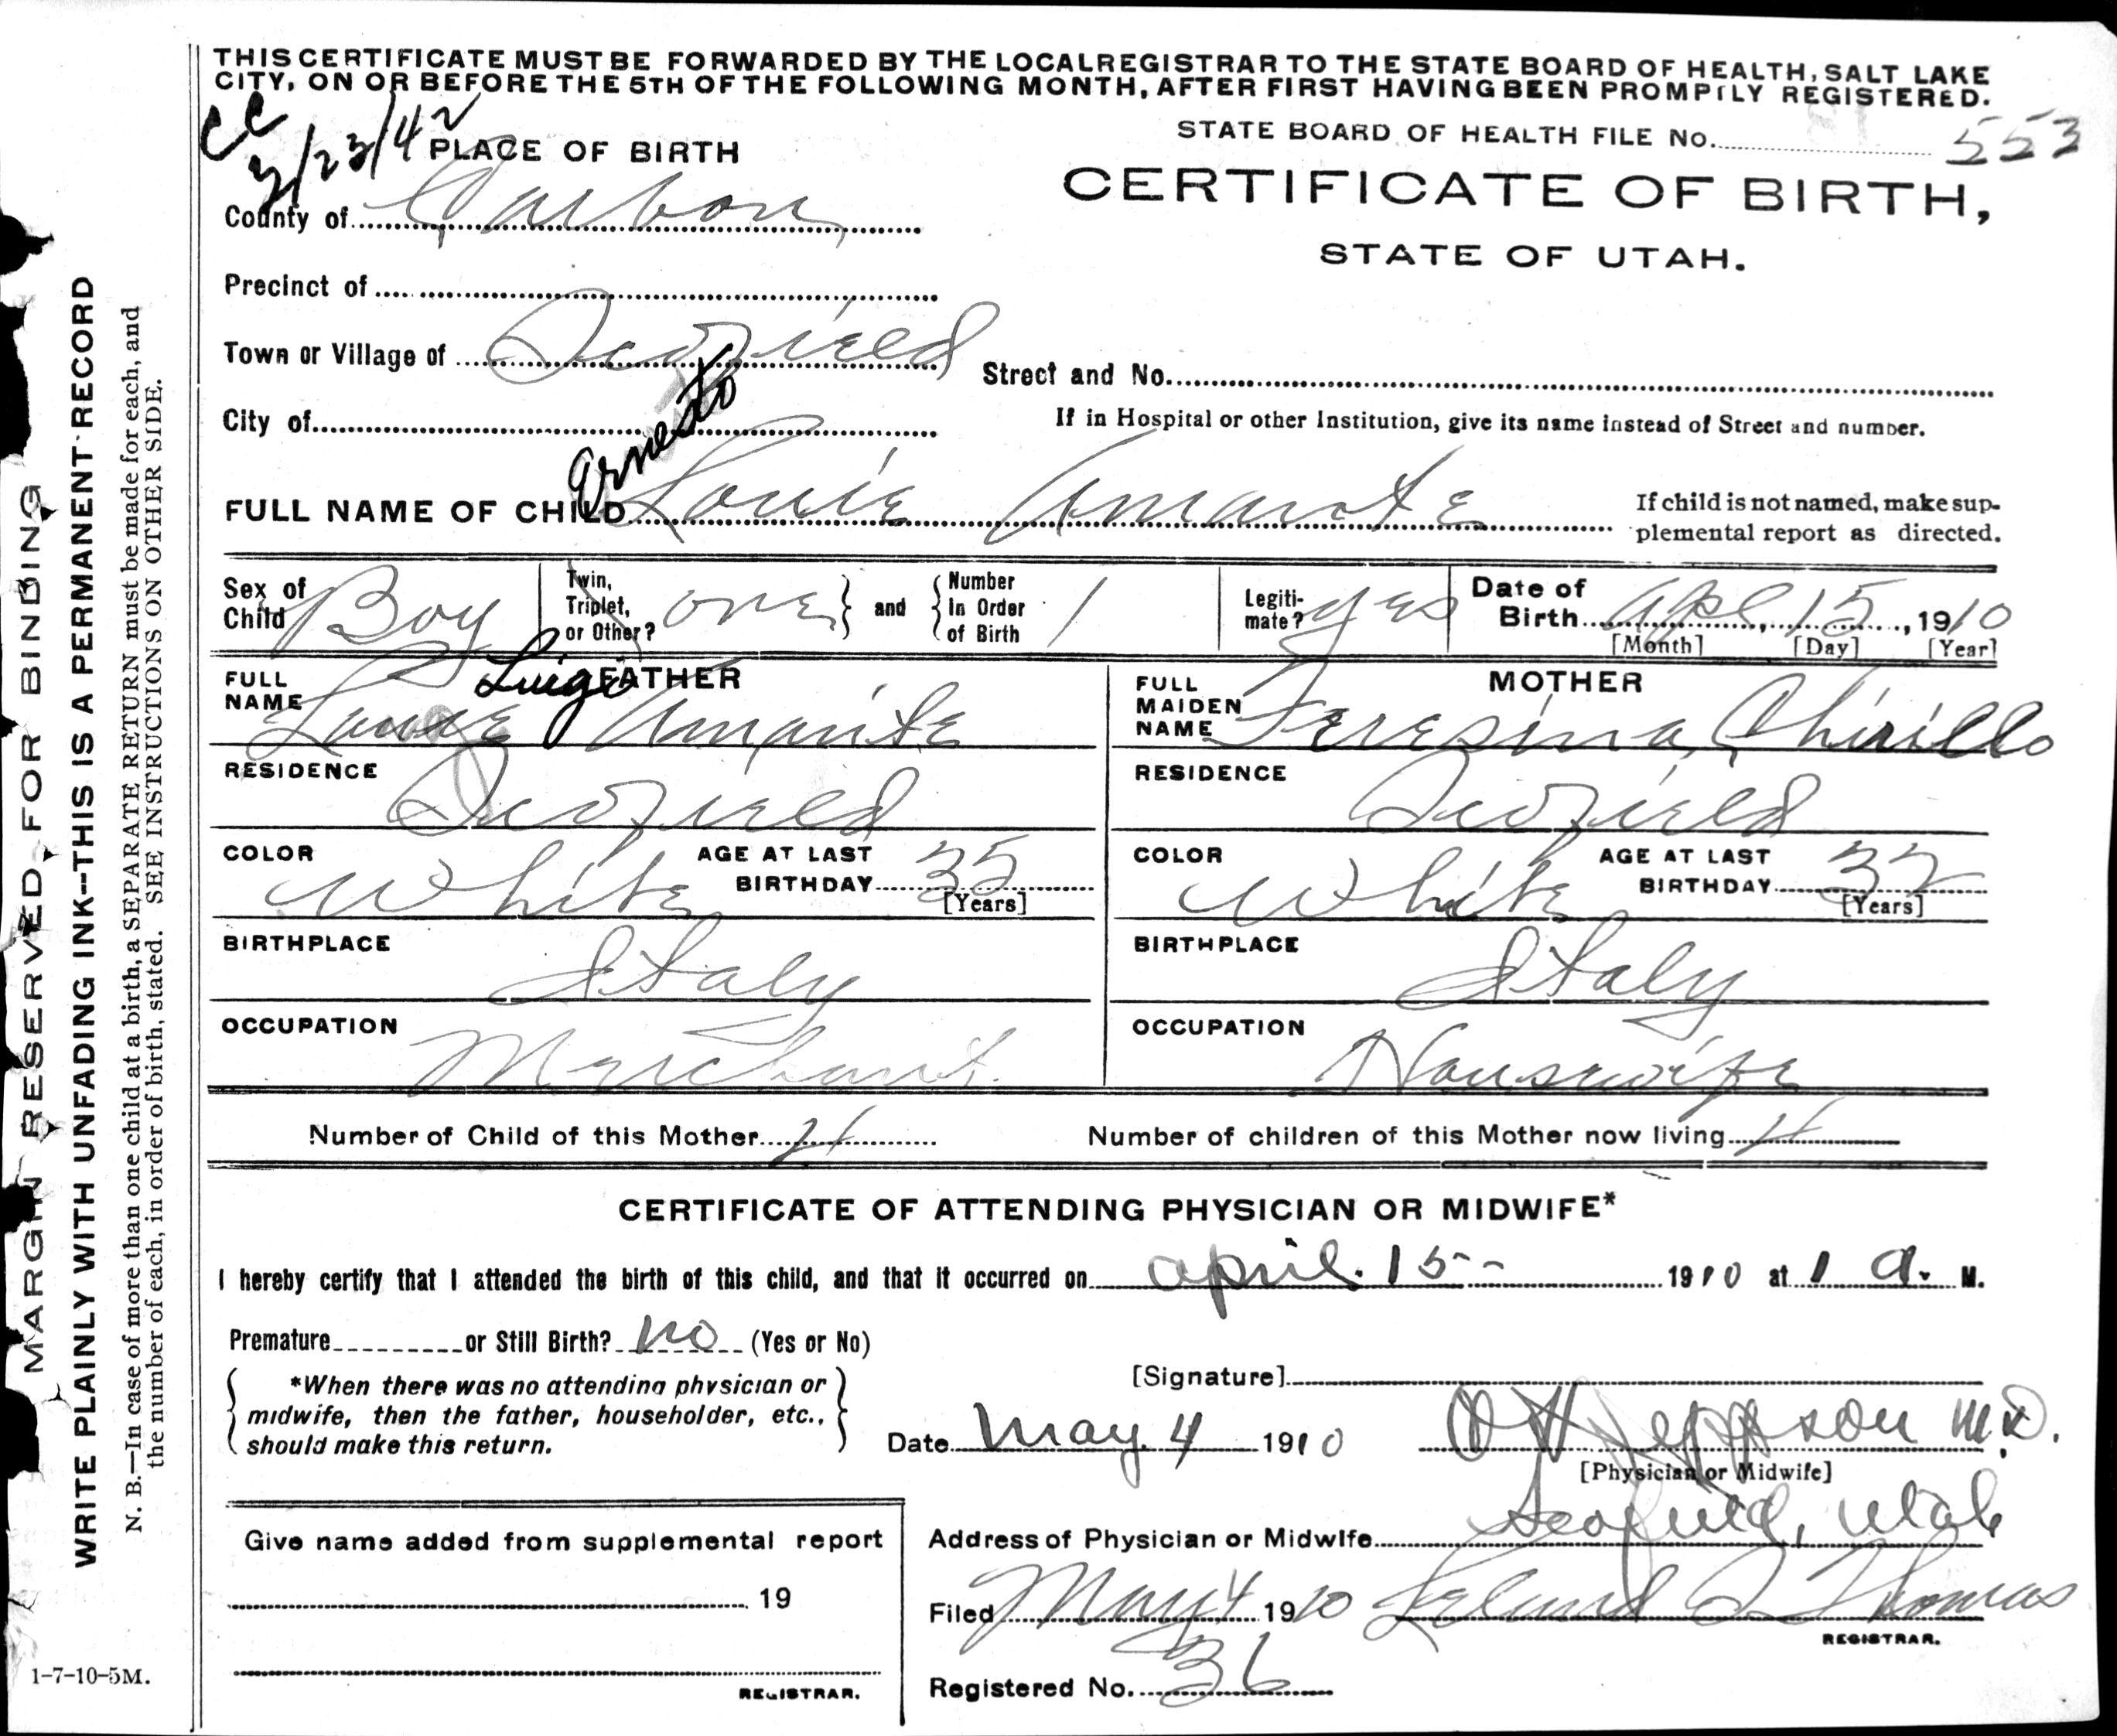 THIS CERTIFICATE MUST BE FORWARDED BY THE LOCAL REGISTRAR TO THE STATE BOARD OF HEALTH, SALT LAKE
CITY, ON OR BEFORE THE 5TH OF THE FOLLOWING MONTH, AFTER FIRST HAVING BEEN PROMPTLY REGISTERED.
CC
3/23/42
PLACE OF BIRTH
STATE BOARD OF HEALTH FILE No. 553
CERTIFICATE OF BIRTH,
STATE OF UTAH.
County of Carbon
Precinct of
Town or Village of Scofield
Street and No.
City of
If in Hospital or other Institution, give its name instead of Street and number.
Ernesto
FULL NAME OF CHILD Louie Amante
If child is not named, make sup-
plemental report as directed.
Sex of Child Boy
Twin, Triplet, or Other? one and Number In Order of Birth 1
Legiti-mate? yes
Date of Birth Apl 15, 1910
[Month] [Day] [Year]
FATHER
Luigi
FULL NAME Louie Amante
RESIDENCE Scofield
COLOR White
AGE AT LAST BIRTHDAY 35
[Years]
BIRTHPLACE Italy
OCCUPATION Merchant
MOTHER
FULL MAIDEN NAME Teresina Chirillo
RESIDENCE Scofield
COLOR White
AGE AT LAST BIRTHDAY 32
[Years]
BIRTHPLACE Italy
OCCUPATION Housewife
Number of Child of this Mother 4
Number of children of this Mother now living 4
CERTIFICATE OF ATTENDING PHYSICIAN OR MIDWIFE*
I hereby certify that I attended the birth of this child, and that it occurred on april 15 1910 at 1 a. M.
Premature or Still Birth? no (Yes or No)
*When there was no attending physician or
midwife, then the father, householder, etc.,
should make this return.
[Signature]
Date May 4 1910
Jeppson M.D.
[Physician or Midwife]
Address of Physician or Midwife Scofield, Utah
Give name added from supplemental report
19
REGISTRAR.
Filed May 4 1910 Thomas
REGISTRAR.
Registered No. 36
MARGIN RESERVED FOR BINDING
WRITE PLAINLY WITH UNFADING INK--THIS IS A PERMANENT RECORD
N. B.—In case of more than one child at a birth, a SEPARATE RETURN must be made for each, and
the number of each, in order of birth, stated. SEE INSTRUCTIONS ON OTHER SIDE.
1-7-10-5M.